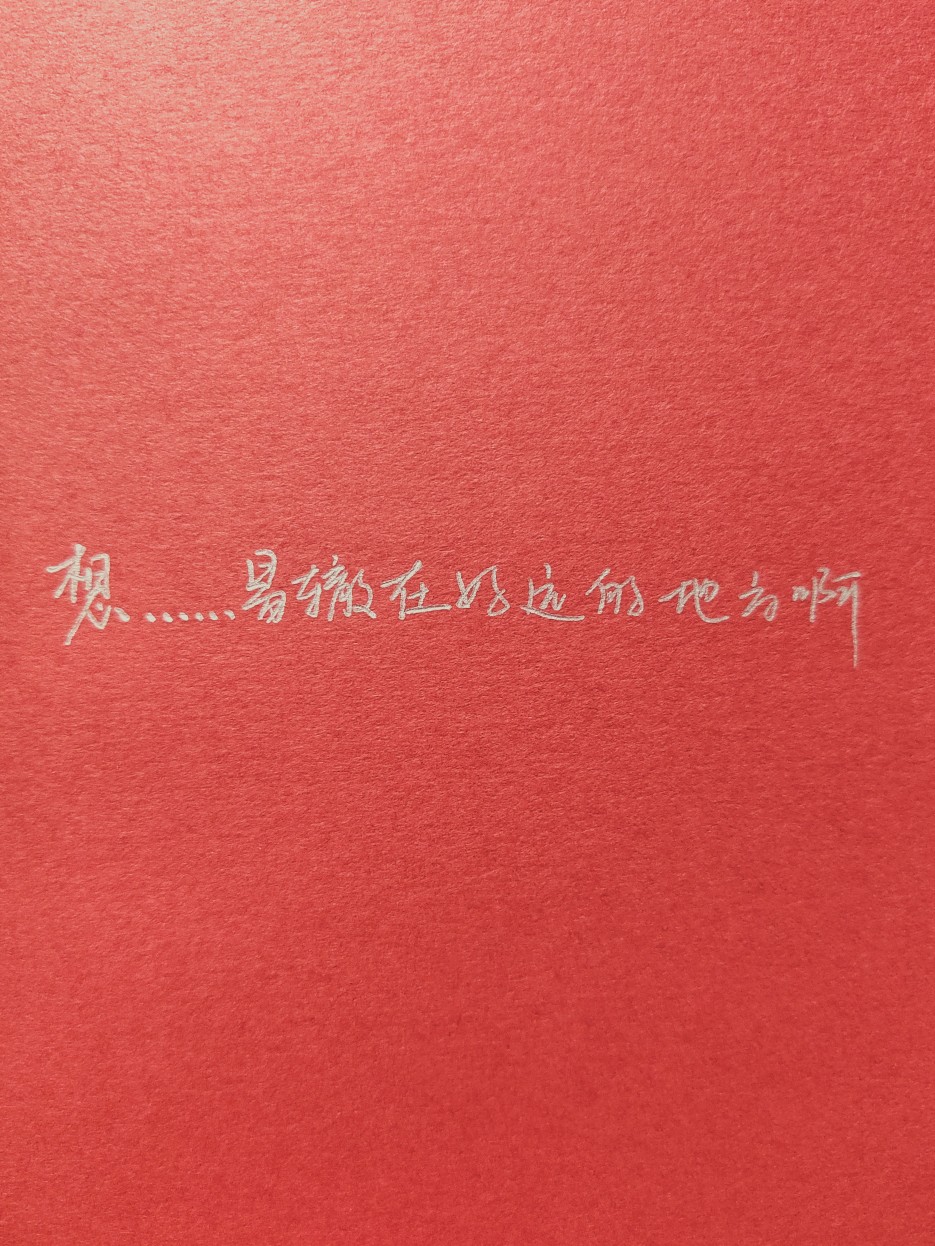 想……易辙在好远的地方啊